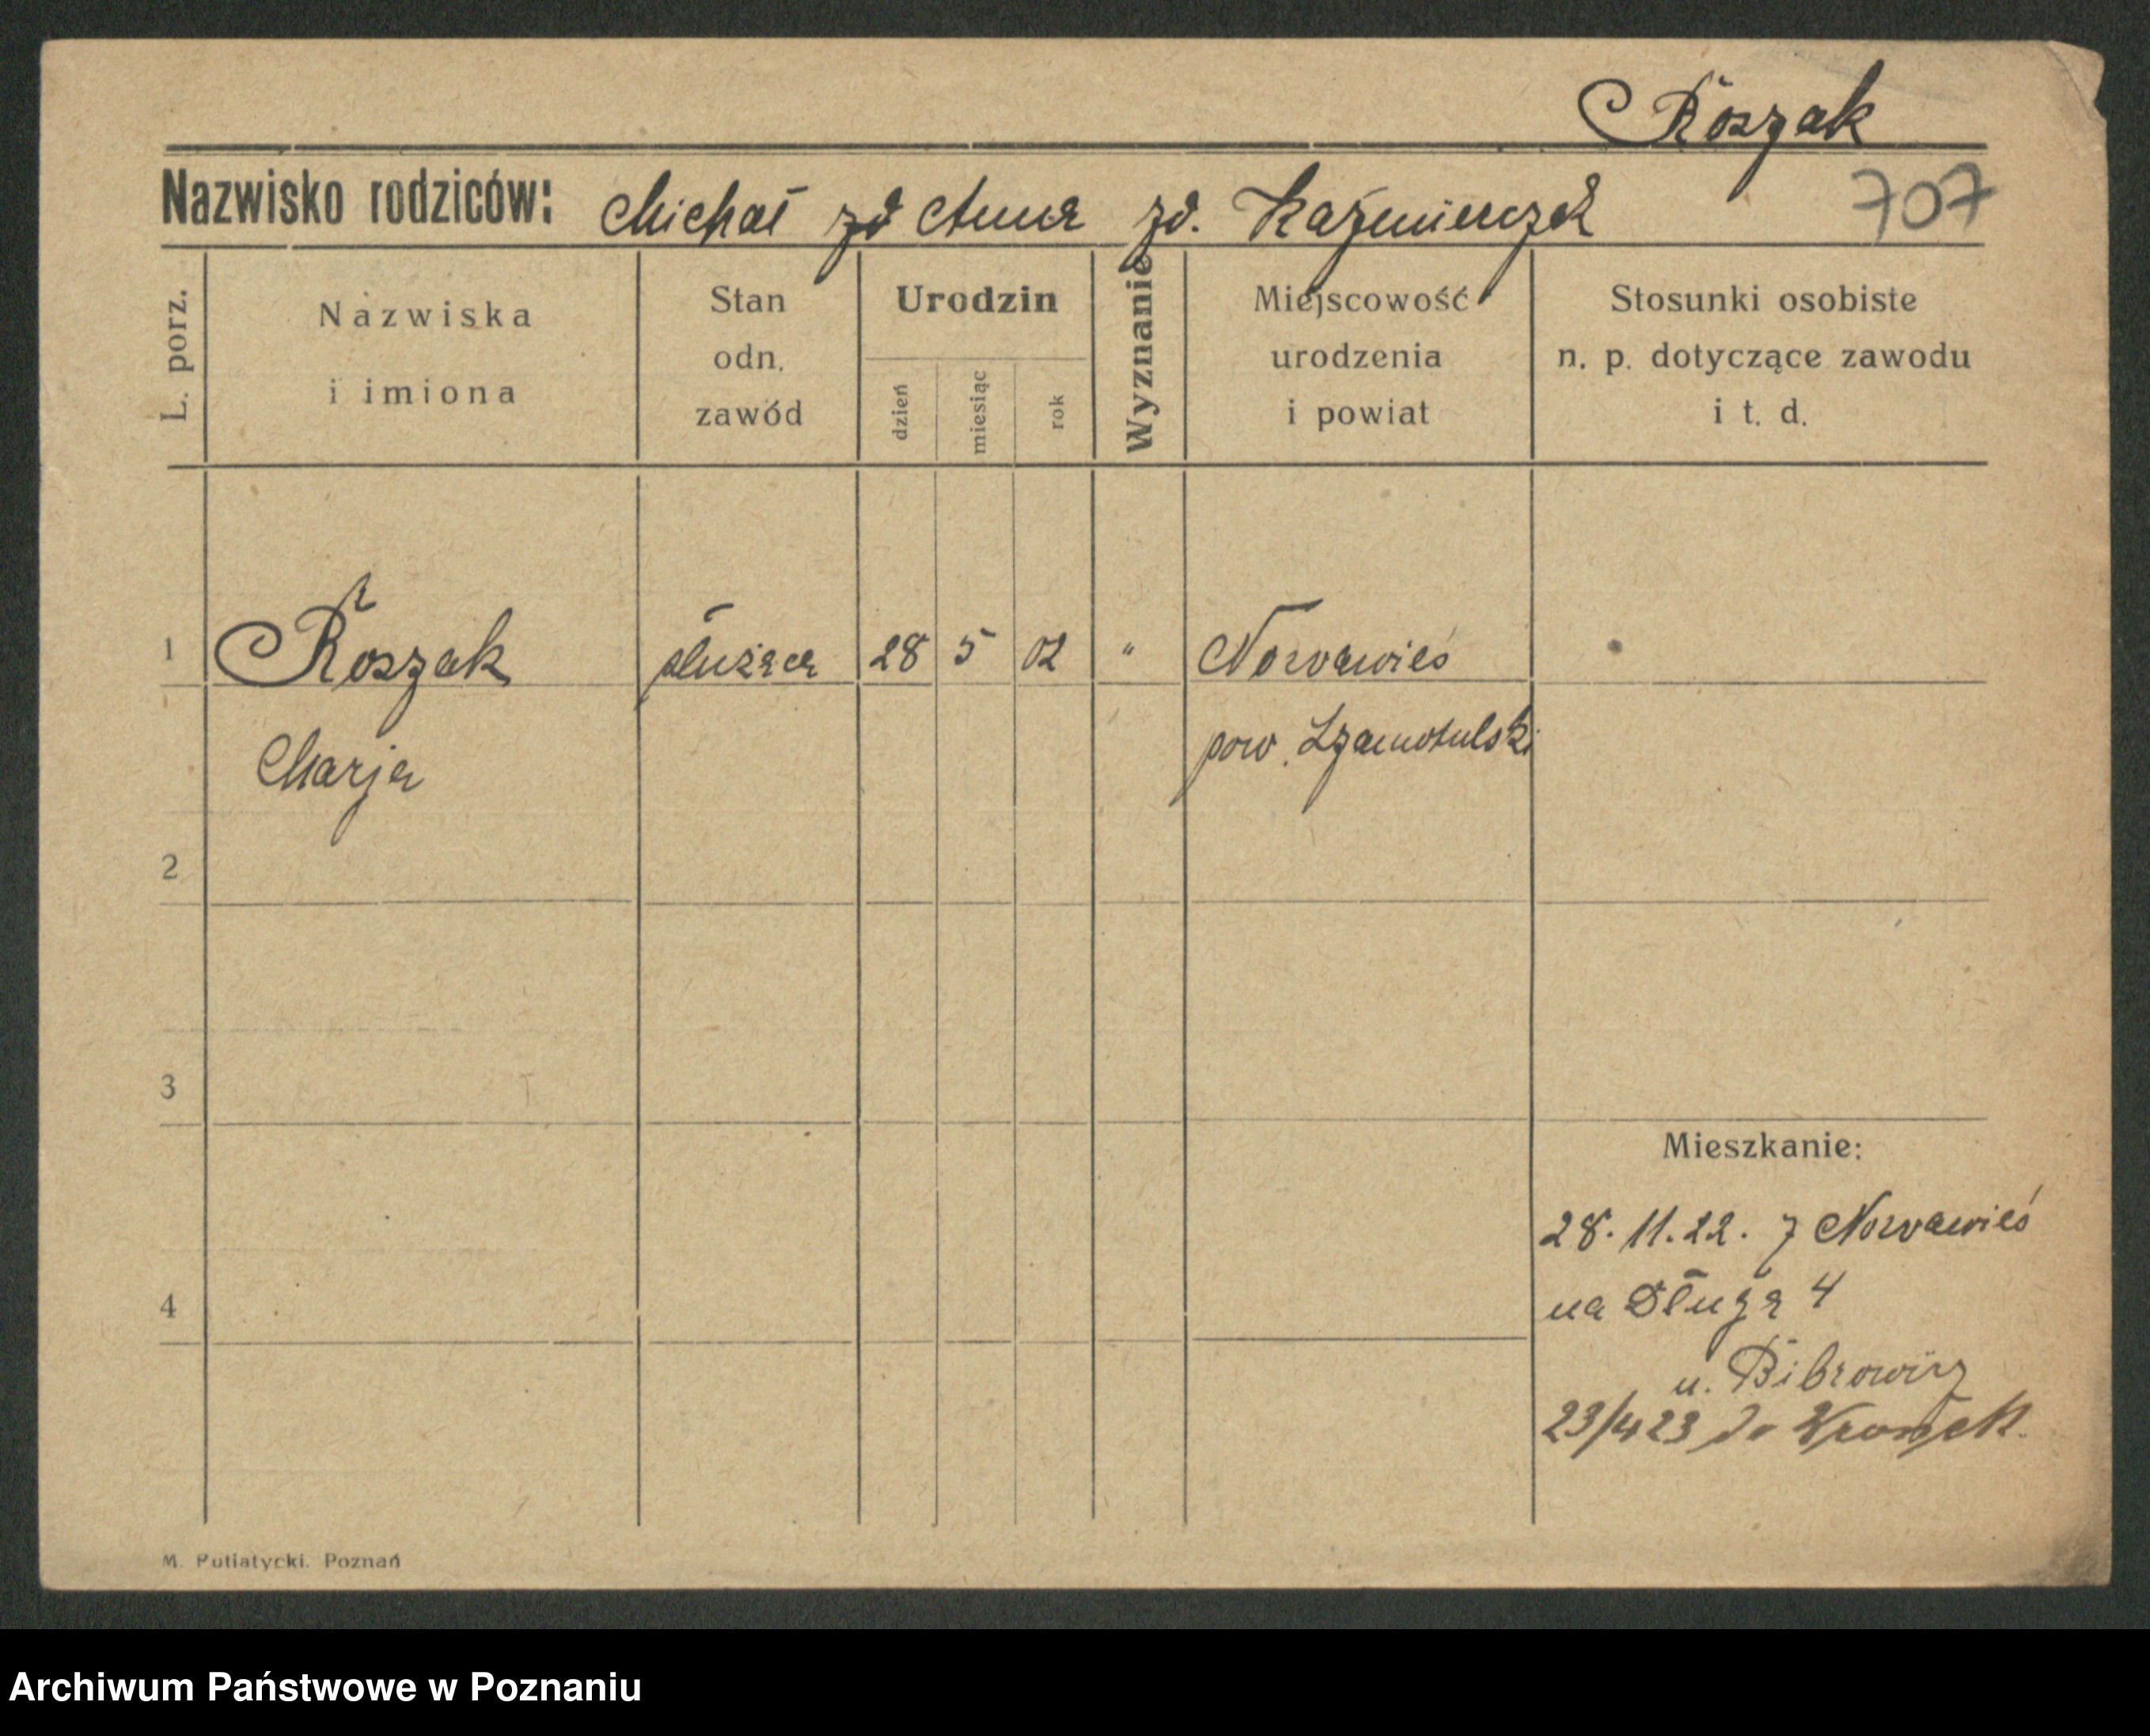 Roszak
Nazwisko rodziców: Michał zd Anna zd. Kaźmierczak
707
L. porz.
Nazwiska
i imiona
Stan
odn.
zawód
Urodzin
dzień
miesiąc
rok
Wyznanie
Miejscowość
urodzenia
i powiat
Stosunki osobiste
n. p. dotyczące zawodu
i t. d.
1 Roszak służąca 28 5 02 " Nowawieś
Marja pow. Szamotulski
2
3
Mieszkanie:
28.11.22. z Nowawieś
4 na Długą 4
u. Bibrowicz
23/4 23 do Wronek.
M. Putiatycki. Poznań
Archiwum Państwowe w Poznaniu